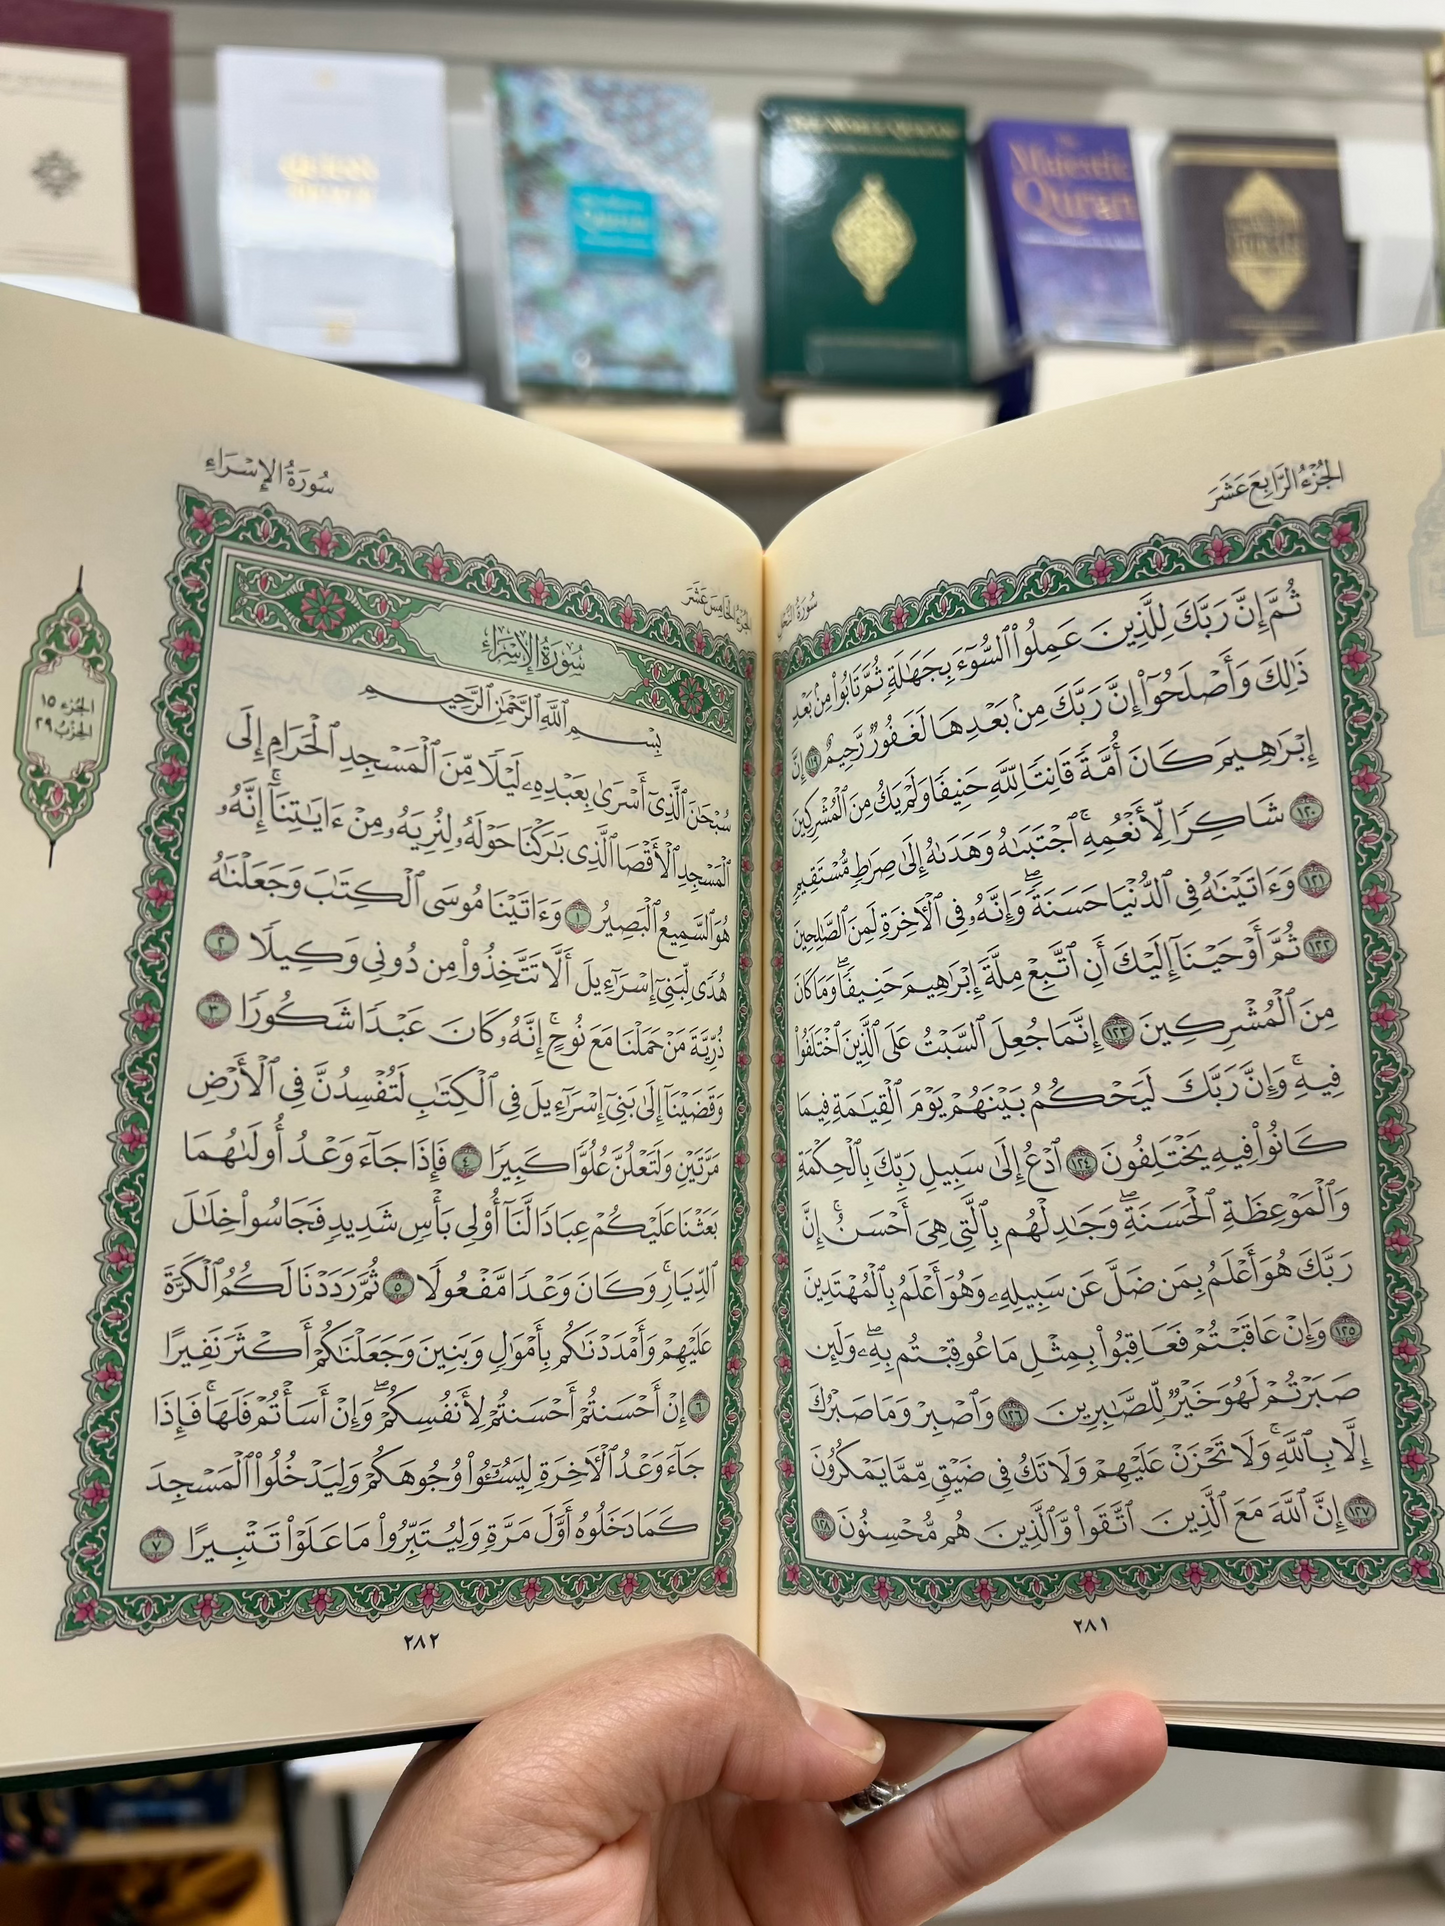 Majestic
Quran
الجُزْءُ الرَّابِعَ عَشَرَ
سُورَةُ النَّحْلِ
ثُمَّ إِنَّ رَبَّكَ لِلَّذِينَ عَمِلُوا۟ ٱلسُّوٓءَ بِجَهَٰلَةٍ ثُمَّ تَابُوا۟ مِنۢ بَعْدِ
ذَٰلِكَ وَأَصْلَحُوٓا۟ إِنَّ رَبَّكَ مِنۢ بَعْدِهَا لَغَفُورٌ رَّحِيمٌ ١١٩ إِنَّ
إِبْرَٰهِيمَ كَانَ أُمَّةً قَانِتًا لِّلَّهِ حَنِيفًا وَلَمْ يَكُ مِنَ ٱلْمُشْرِكِينَ
١٢٠ شَاكِرًا لِّأَنْعُمِهِ ۚ ٱجْتَبَىٰهُ وَهَدَىٰهُ إِلَىٰ صِرَٰطٍ مُّسْتَقِيمٍ
١٢١ وَءَاتَيْنَٰهُ فِى ٱلدُّنْيَا حَسَنَةً ۖ وَإِنَّهُۥ فِى ٱلْءَاخِرَةِ لَمِنَ ٱلصَّٰلِحِينَ
١٢٢ ثُمَّ أَوْحَيْنَآ إِلَيْكَ أَنِ ٱتَّبِعْ مِلَّةَ إِبْرَٰهِيمَ حَنِيفًا ۖ وَمَا كَانَ
مِنَ ٱلْمُشْرِكِينَ ١٢٣ إِنَّمَا جُعِلَ ٱلسَّبْتُ عَلَى ٱلَّذِينَ ٱخْتَلَفُوا۟
فِيهِ ۚ وَإِنَّ رَبَّكَ لَيَحْكُمُ بَيْنَهُمْ يَوْمَ ٱلْقِيَٰمَةِ فِيمَا
كَانُوا۟ فِيهِ يَخْتَلِفُونَ ١٢٤ ٱدْعُ إِلَىٰ سَبِيلِ رَبِّكَ بِٱلْحِكْمَةِ
وَٱلْمَوْعِظَةِ ٱلْحَسَنَةِ ۖ وَجَٰدِلْهُم بِٱلَّتِى هِىَ أَحْسَنُ ۚ إِنَّ
رَبَّكَ هُوَ أَعْلَمُ بِمَن ضَلَّ عَن سَبِيلِهِۦ وَهُوَ أَعْلَمُ بِٱلْمُهْتَدِينَ
١٢٥ وَإِنْ عَاقَبْتُمْ فَعَاقِبُوا۟ بِمِثْلِ مَا عُوقِبْتُم بِهِۦ ۖ وَلَئِن
صَبَرْتُمْ لَهُوَ خَيْرٌ لِّلصَّٰبِرِينَ ١٢٦ وَٱصْبِرْ وَمَا صَبْرُكَ
إِلَّا بِٱللَّهِ ۚ وَلَا تَحْزَنْ عَلَيْهِمْ وَلَا تَكُ فِى ضَيْقٍ مِّمَّا يَمْكُرُونَ
١٢٧ إِنَّ ٱللَّهَ مَعَ ٱلَّذِينَ ٱتَّقَوا۟ وَّٱلَّذِينَ هُم مُّحْسِنُونَ ١٢٨
٢٨١
سُورَةُ الإِسْرَاءِ
الجُزْءُ الخَامِسَ عَشَرَ
الجزء ١٥
الحزب ٢٩
سُورَةُ الإِسْرَاءِ
بِسْمِ ٱللَّهِ ٱلرَّحْمَٰنِ ٱلرَّحِيمِ
سُبْحَٰنَ ٱلَّذِىٓ أَسْرَىٰ بِعَبْدِهِۦ لَيْلًا مِّنَ ٱلْمَسْجِدِ ٱلْحَرَامِ إِلَى
ٱلْمَسْجِدِ ٱلْأَقْصَا ٱلَّذِى بَٰرَكْنَا حَوْلَهُۥ لِنُرِيَهُۥ مِنْ ءَايَٰتِنَآ ۚ إِنَّهُۥ
هُوَ ٱلسَّمِيعُ ٱلْبَصِيرُ ١ وَءَاتَيْنَا مُوسَى ٱلْكِتَٰبَ وَجَعَلْنَٰهُ
هُدًى لِّبَنِىٓ إِسْرَٰٓءِيلَ أَلَّا تَتَّخِذُوا۟ مِن دُونِى وَكِيلًا ٢
ذُرِّيَّةَ مَنْ حَمَلْنَا مَعَ نُوحٍ ۚ إِنَّهُۥ كَانَ عَبْدًا شَكُورًا ٣
وَقَضَيْنَآ إِلَىٰ بَنِىٓ إِسْرَٰٓءِيلَ فِى ٱلْكِتَٰبِ لَتُفْسِدُنَّ فِى ٱلْأَرْضِ
مَرَّتَيْنِ وَلَتَعْلُنَّ عُلُوًّا كَبِيرًا ٤ فَإِذَا جَآءَ وَعْدُ أُولَىٰهُمَا
بَعَثْنَا عَلَيْكُمْ عِبَادًا لَّنَآ أُو۟لِى بَأْسٍ شَدِيدٍ فَجَاسُوا۟ خِلَٰلَ
ٱلدِّيَارِ ۚ وَكَانَ وَعْدًا مَّفْعُولًا ٥ ثُمَّ رَدَدْنَا لَكُمُ ٱلْكَرَّةَ
عَلَيْهِمْ وَأَمْدَدْنَٰكُم بِأَمْوَٰلٍ وَبَنِينَ وَجَعَلْنَٰكُمْ أَكْثَرَ نَفِيرًا
٦ إِنْ أَحْسَنتُمْ أَحْسَنتُمْ لِأَنفُسِكُمْ ۖ وَإِنْ أَسَأْتُمْ فَلَهَا ۚ فَإِذَا
جَآءَ وَعْدُ ٱلْءَاخِرَةِ لِيَسُۥٓـُٔوا۟ وُجُوهَكُمْ وَلِيَدْخُلُوا۟ ٱلْمَسْجِدَ
كَمَا دَخَلُوهُ أَوَّلَ مَرَّةٍ وَلِيُتَبِّرُوا۟ مَا عَلَوْا۟ تَتْبِيرًا ٧
٢٨٢